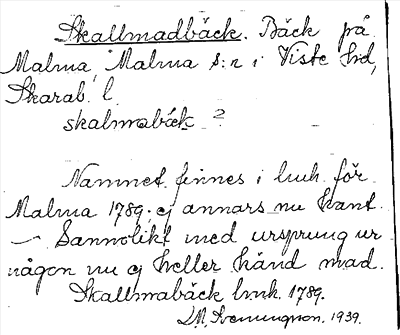 Skallmadbäck. Bäck på
Malma, Malma s:n i Viste hd,
Skarab. l.
skalmabäk ?
Namnet finnes i lmh. för
Malma 1789; ej annars nu känt.
— Sannolikt med ursprung ur
någon nu ej heller känd mad.
Skallmabäck lmh. 1789.
1939.